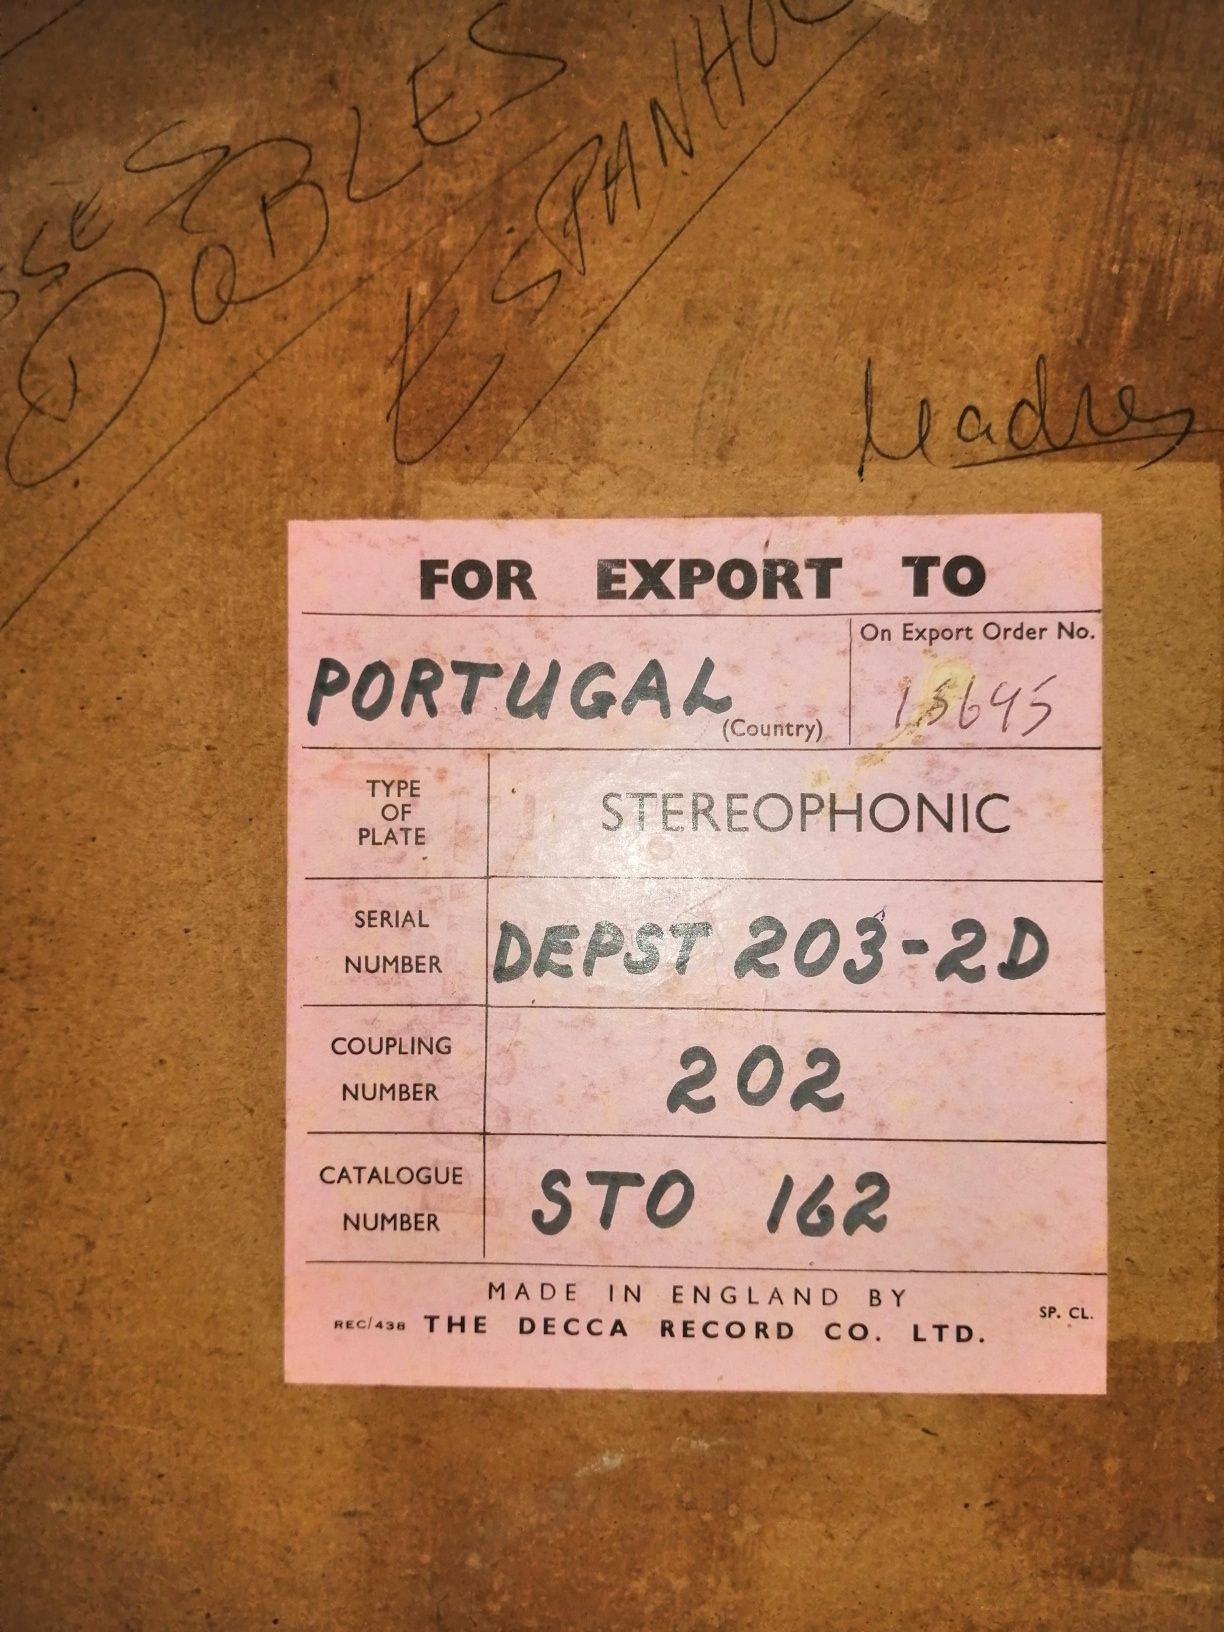 DOBLES
ESPANHOL
Madres
FOR EXPORT TO
PORTUGAL
(Country)
On Export Order No.
15645
TYPE
OF
PLATE
STEREOPHONIC
SERIAL
NUMBER
DEPST 203-2D
COUPLING
NUMBER
202
CATALOGUE
NUMBER
STO 162
MADE IN ENGLAND BY
REC/438 THE DECCA RECORD CO. LTD.
SP. CL.